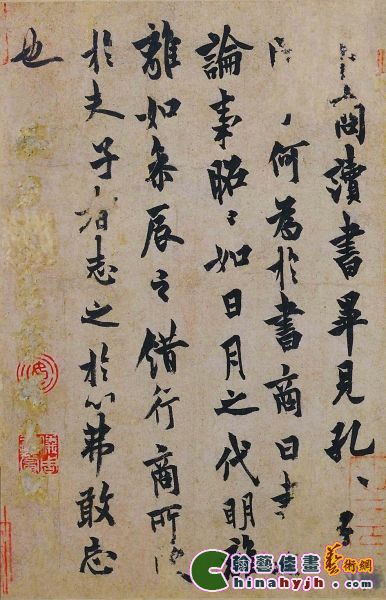 卜商讀書畢見孔、子
何為於書商曰書
論事昭〻如日月之代明
離如參辰之錯行商所
於夫子者志之於心弗敢忘
也
翰藝佳畫藝術網
Chinahyjh.com